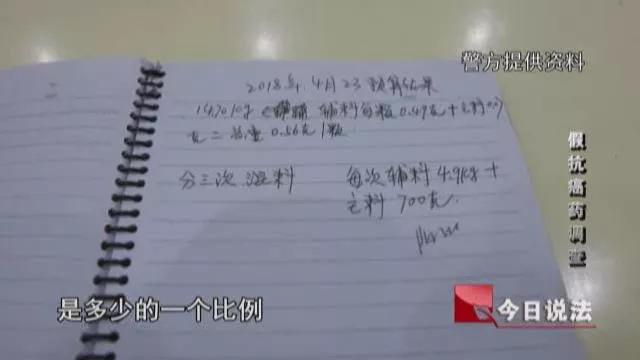 警方提供资料
2018年4月23预算结果
14.701kg 辅料每颗0.49克+主料0.07
克=总重0.56克/颗
分三次混料 每次辅料4.9kg+
主料700克.
假抗癌药调查
是多少的一个比例
今日说法